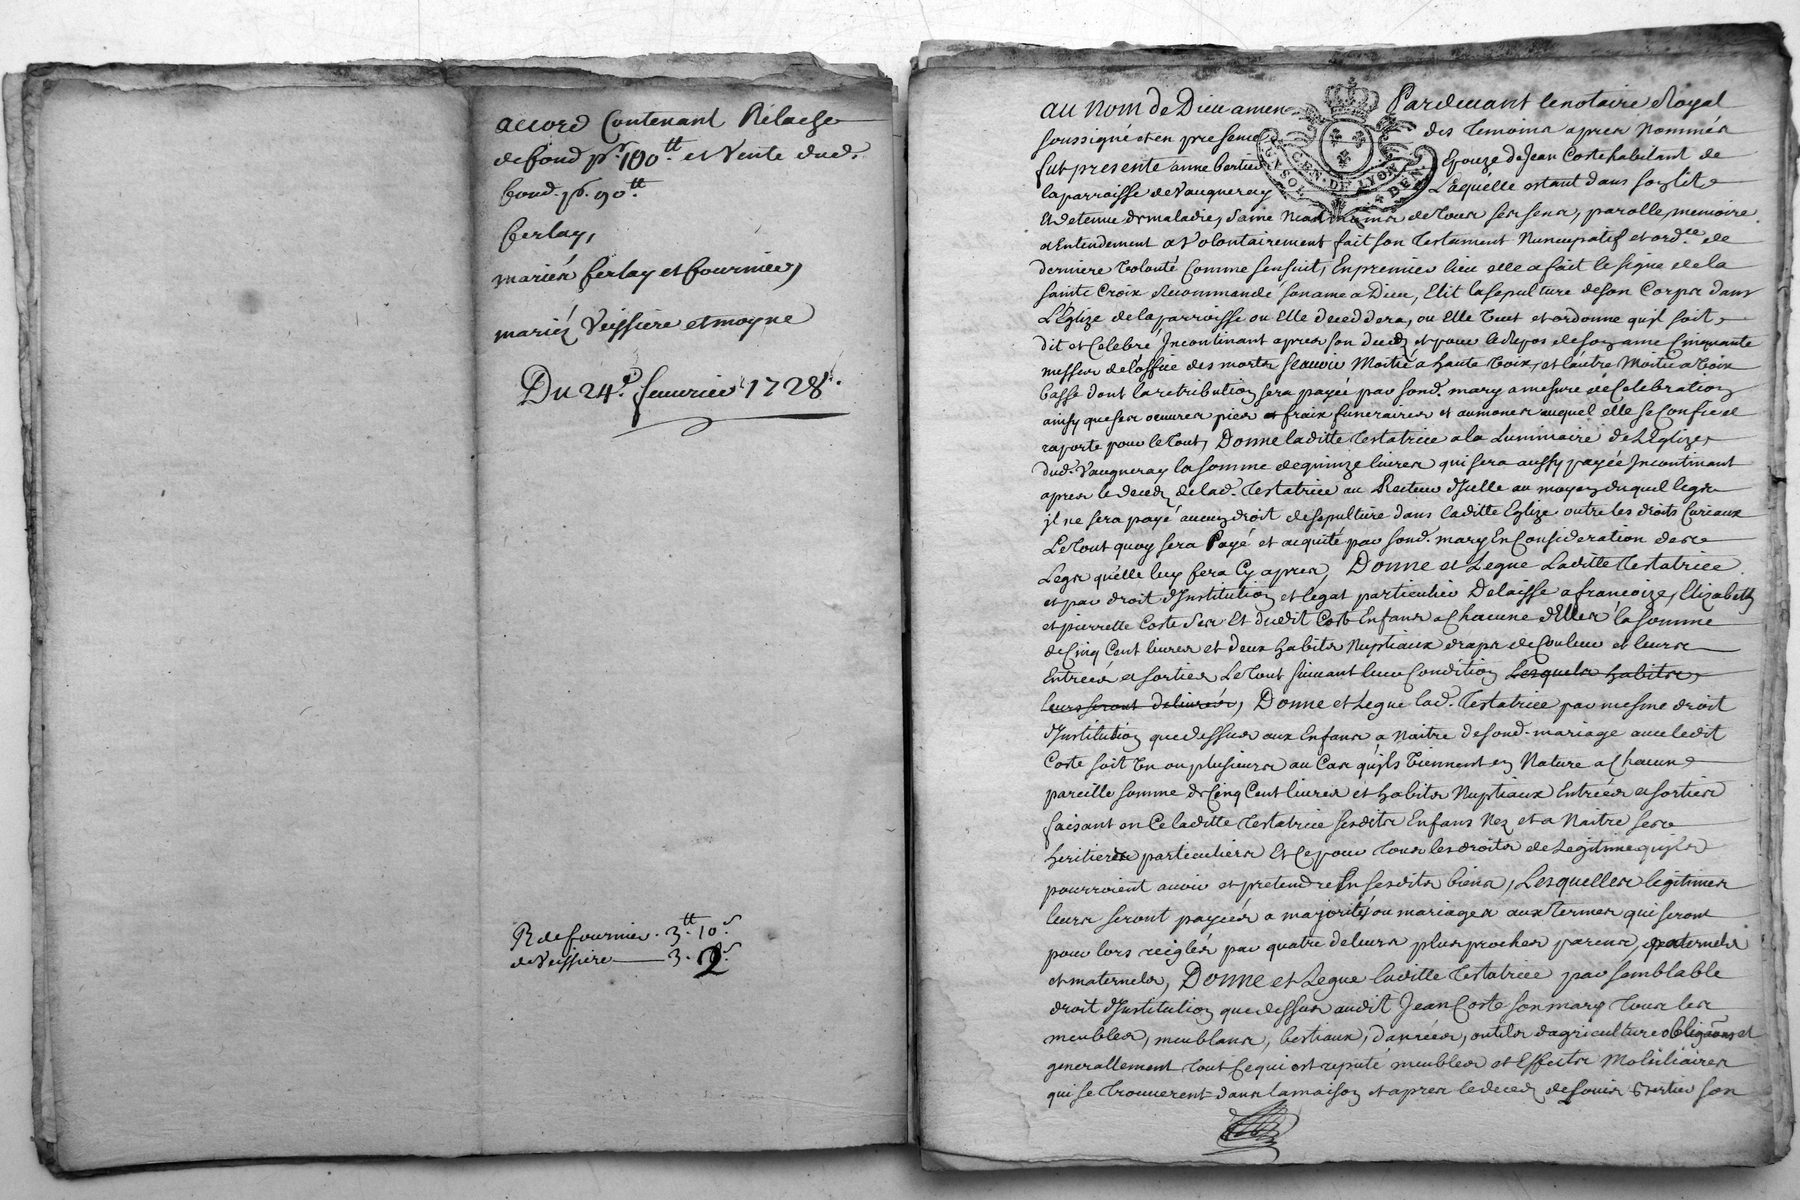 accord Contenant Relache
de fond pr. 100tt et Vente dud.
fond pr. 90tt
ferlay,
mariés ferlay et fournier,
mariéz Veissiere et moyne
Du 24e. feuvrier 1728.
R de fournier. 3tt 10s
de Veissiere 3. 2s
au nom de Dieu amen Pardevant le notaire Royal
soussigné et en presence des Temoins apres Nommés
fut presente anne bertier Epouze de Jean Coste habitant de
la parroisse de Vaugneray Laquelle estant dans son lit
et detenue de maladie, saine neanmoins de tous ses sens, parolle, memoire
et Entendement a Volontairement fait son Testament Nuncupatif et ordce. de
derniere Volonté Comme sensuit, En premier lieu elle a fait le signe de la
sainte Croix Recommandé son ame a Dieu, Elit la sepulture de son Corps dans
L'Eglize de la parroisse ou Elle deceddera, ou Elle Veut et ordonne quil soit
dit et Celebré Incontinant apres son decez et pour le Repos de son ame Cinquante
messes de l'office des morts scavoir Moitié a haute Voix, et l'autre Moitié a Voix
basse dont la retribution sera payée par sond. mary a mesure de Celebration
ainsy que ses oeuvres pies et fraix funeraires et aumones auquel elle se Confie et
raporte pour le tout, Donne laditte Testatrice a la Luminaire de L'Eglize
dud. Vaugneray la somme de quinze livres qui sera aussy payée Incontinant
apres le decez de lad. Testatrice au Recteur d'Icelle au moyen duquel legs
il ne sera payé aucun droit de sepulture dans laditte Eglize outre les droits Curiaux
Le Tout quoy sera Payé et acquité par sond. mary En Consideration des
Legs quelle luy fera Cy apres, Donne et Legue Laditte Testatrice
et par droit d'Institution et legat particulier Delaisse a francoize, Elizabeth
et pierrette Coste ses et dudit Coste Enfans a Chacune d'Elles la somme
de Cinq Cent livres et deux habits Nuptiaux draps de Couleur et leurs
Entrées et sorties Le Tout suivant leur Condition Lesquels habits
leurs seront delivrés, Donne et Legue lad. Testatrice par mesme droit
d'Institution que dessus aux Enfans a Naitre de sond. mariage avec ledit
Coste soit Un ou plusieurs au Cas quils Viennent en Nature a Chacun
pareille somme de Cinq Cent livres et habits Nuptiaux Entrées et sorties
faisant en Ce laditte Testatrice sesdits Enfans Nez et a Naitre ses
heritiers particuliers Et Ce pour Tous les droits de Legitime quils
pourroient avoir et pretendre En sesdits biens, Lesquelles legitimes
leurs seront payées a majorités ou mariages aux Termes qui seront
pour lors reiglés par quatre de leurs plus proches parens paternels
et maternels, Donne et Legue laditte Testatrice par semblable
droit d'Institution que dessus audit Jean Coste son mary Tous les
meubles, meublans, bestiaux, danrées, outils d'agriculture obligaons et
generallement Tout Ce qui est reputé meubles et Effects Mobiliaires
qui se Trouveront dans la maison et apres le decez de Bertier son